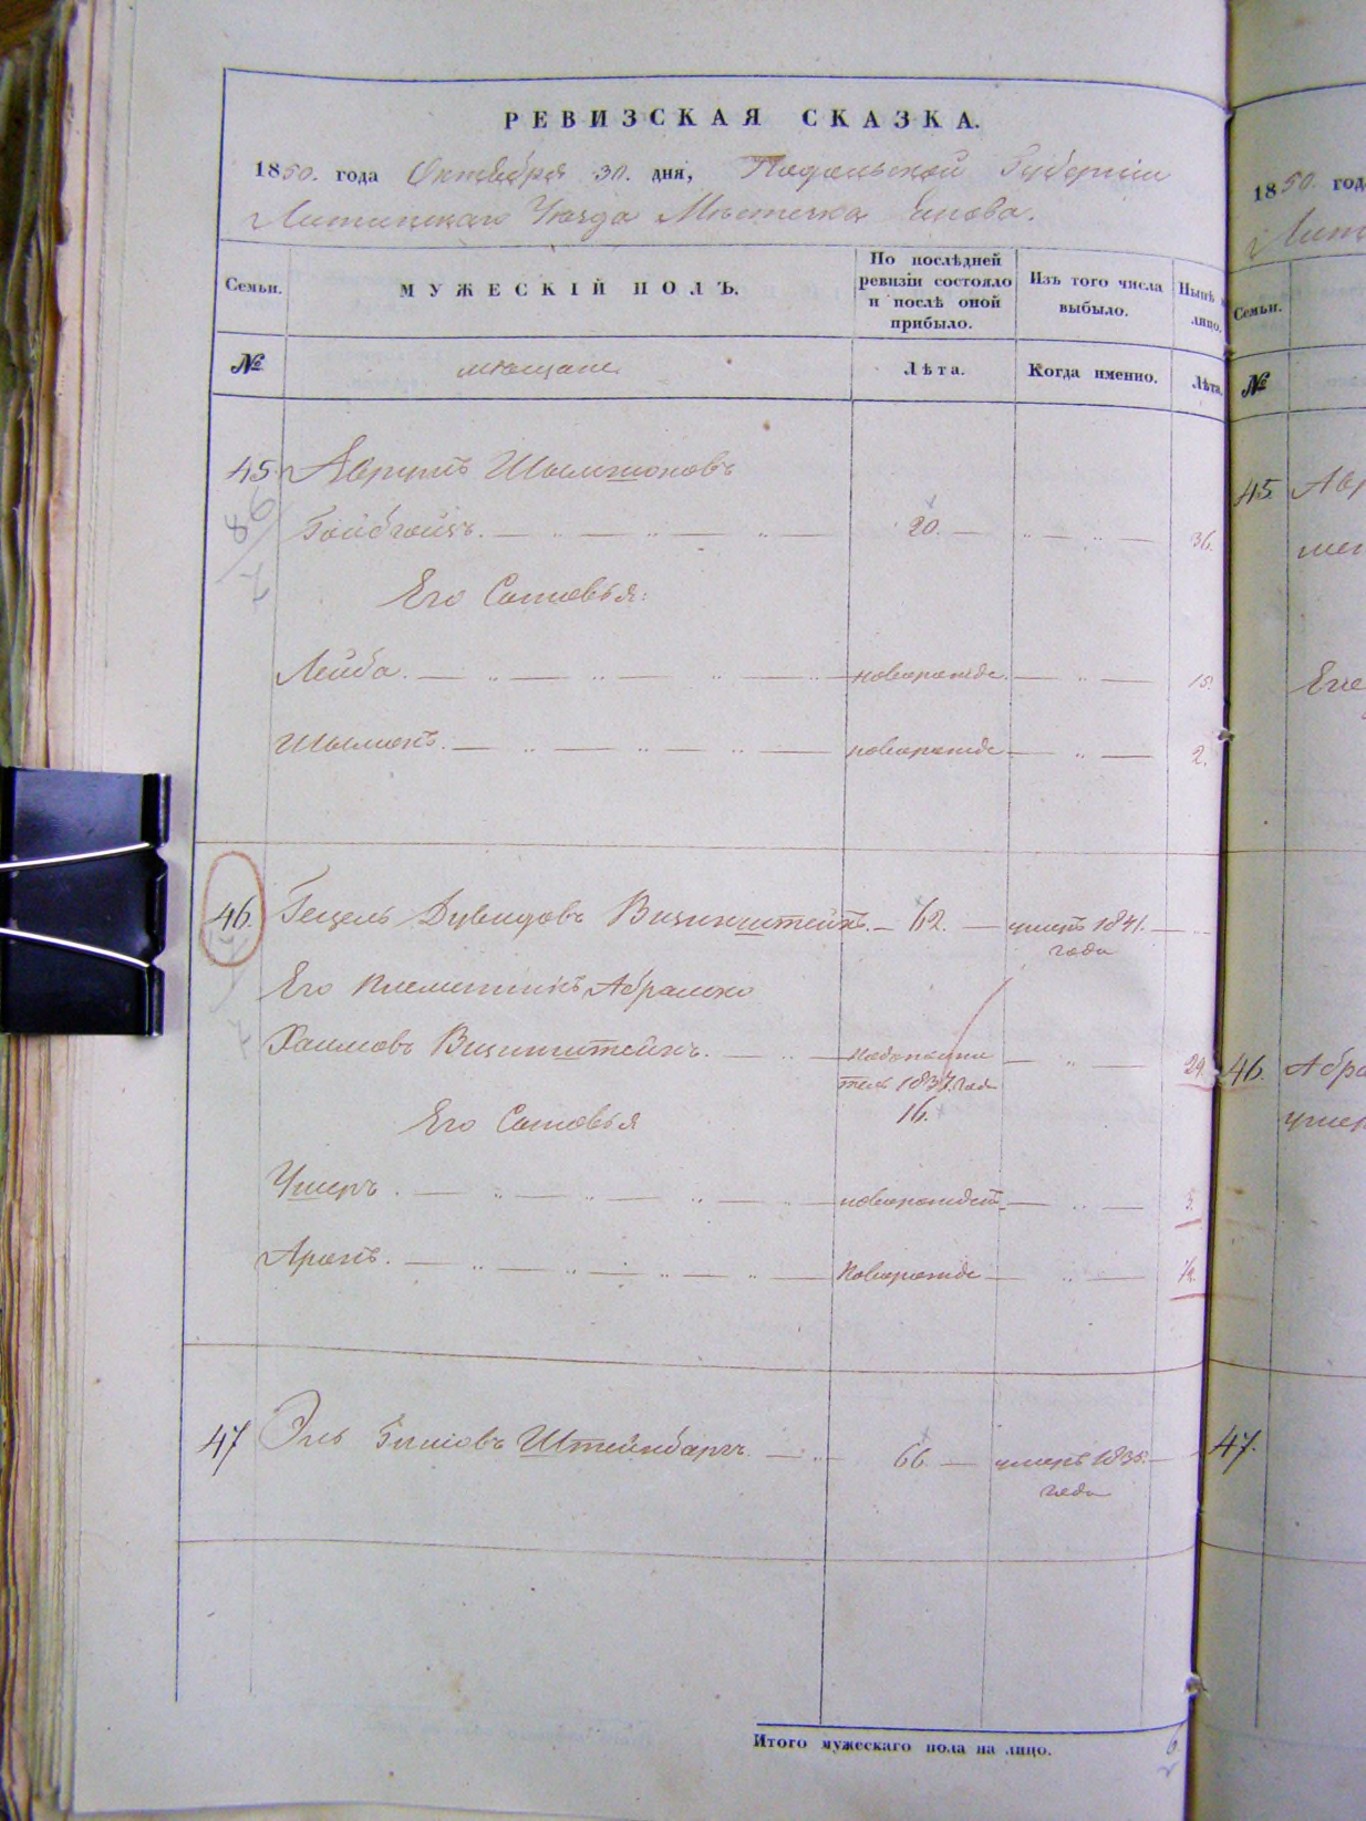 РЕВИЗСКАЯ СКАЗКА.
1850. года Октября 30. дня, Подольской Губернии
Литинскаго Уѣзда Мѣстечка
Семьи.
МУЖЕСКІЙ ПОЛЪ.
По послѣдней
ревизіи состояло
и послѣ оной
прибыло.
Изъ того числа
выбыло.
Нынѣ
лицо.
№
мѣщане
Лѣта.
Когда именно.
Лѣта.
45. Аврумъ Шылмоновъ
20. 36.
Его Сыновья:
Лейба. новорожде. 15.
Шылмонъ. новорожде 2.
46. Гецель Дувидовъ Вицинштейнъ. 62. умеръ 1841.
года
Его племянникъ Абрамко
Хаимовъ Вицинштейнъ. 29.
1837. года
16.
Его Сыновья
Ушеръ. новорожден. 3.
Аронъ. новорожде 1/2.
47 Эль Штейнбаргъ 66 умеръ 1835.
года
Итого мужескаго пола на лицо. 6
1850. год
Лит
Семьи.
№
45. Авр
Его
46. Абра
47.